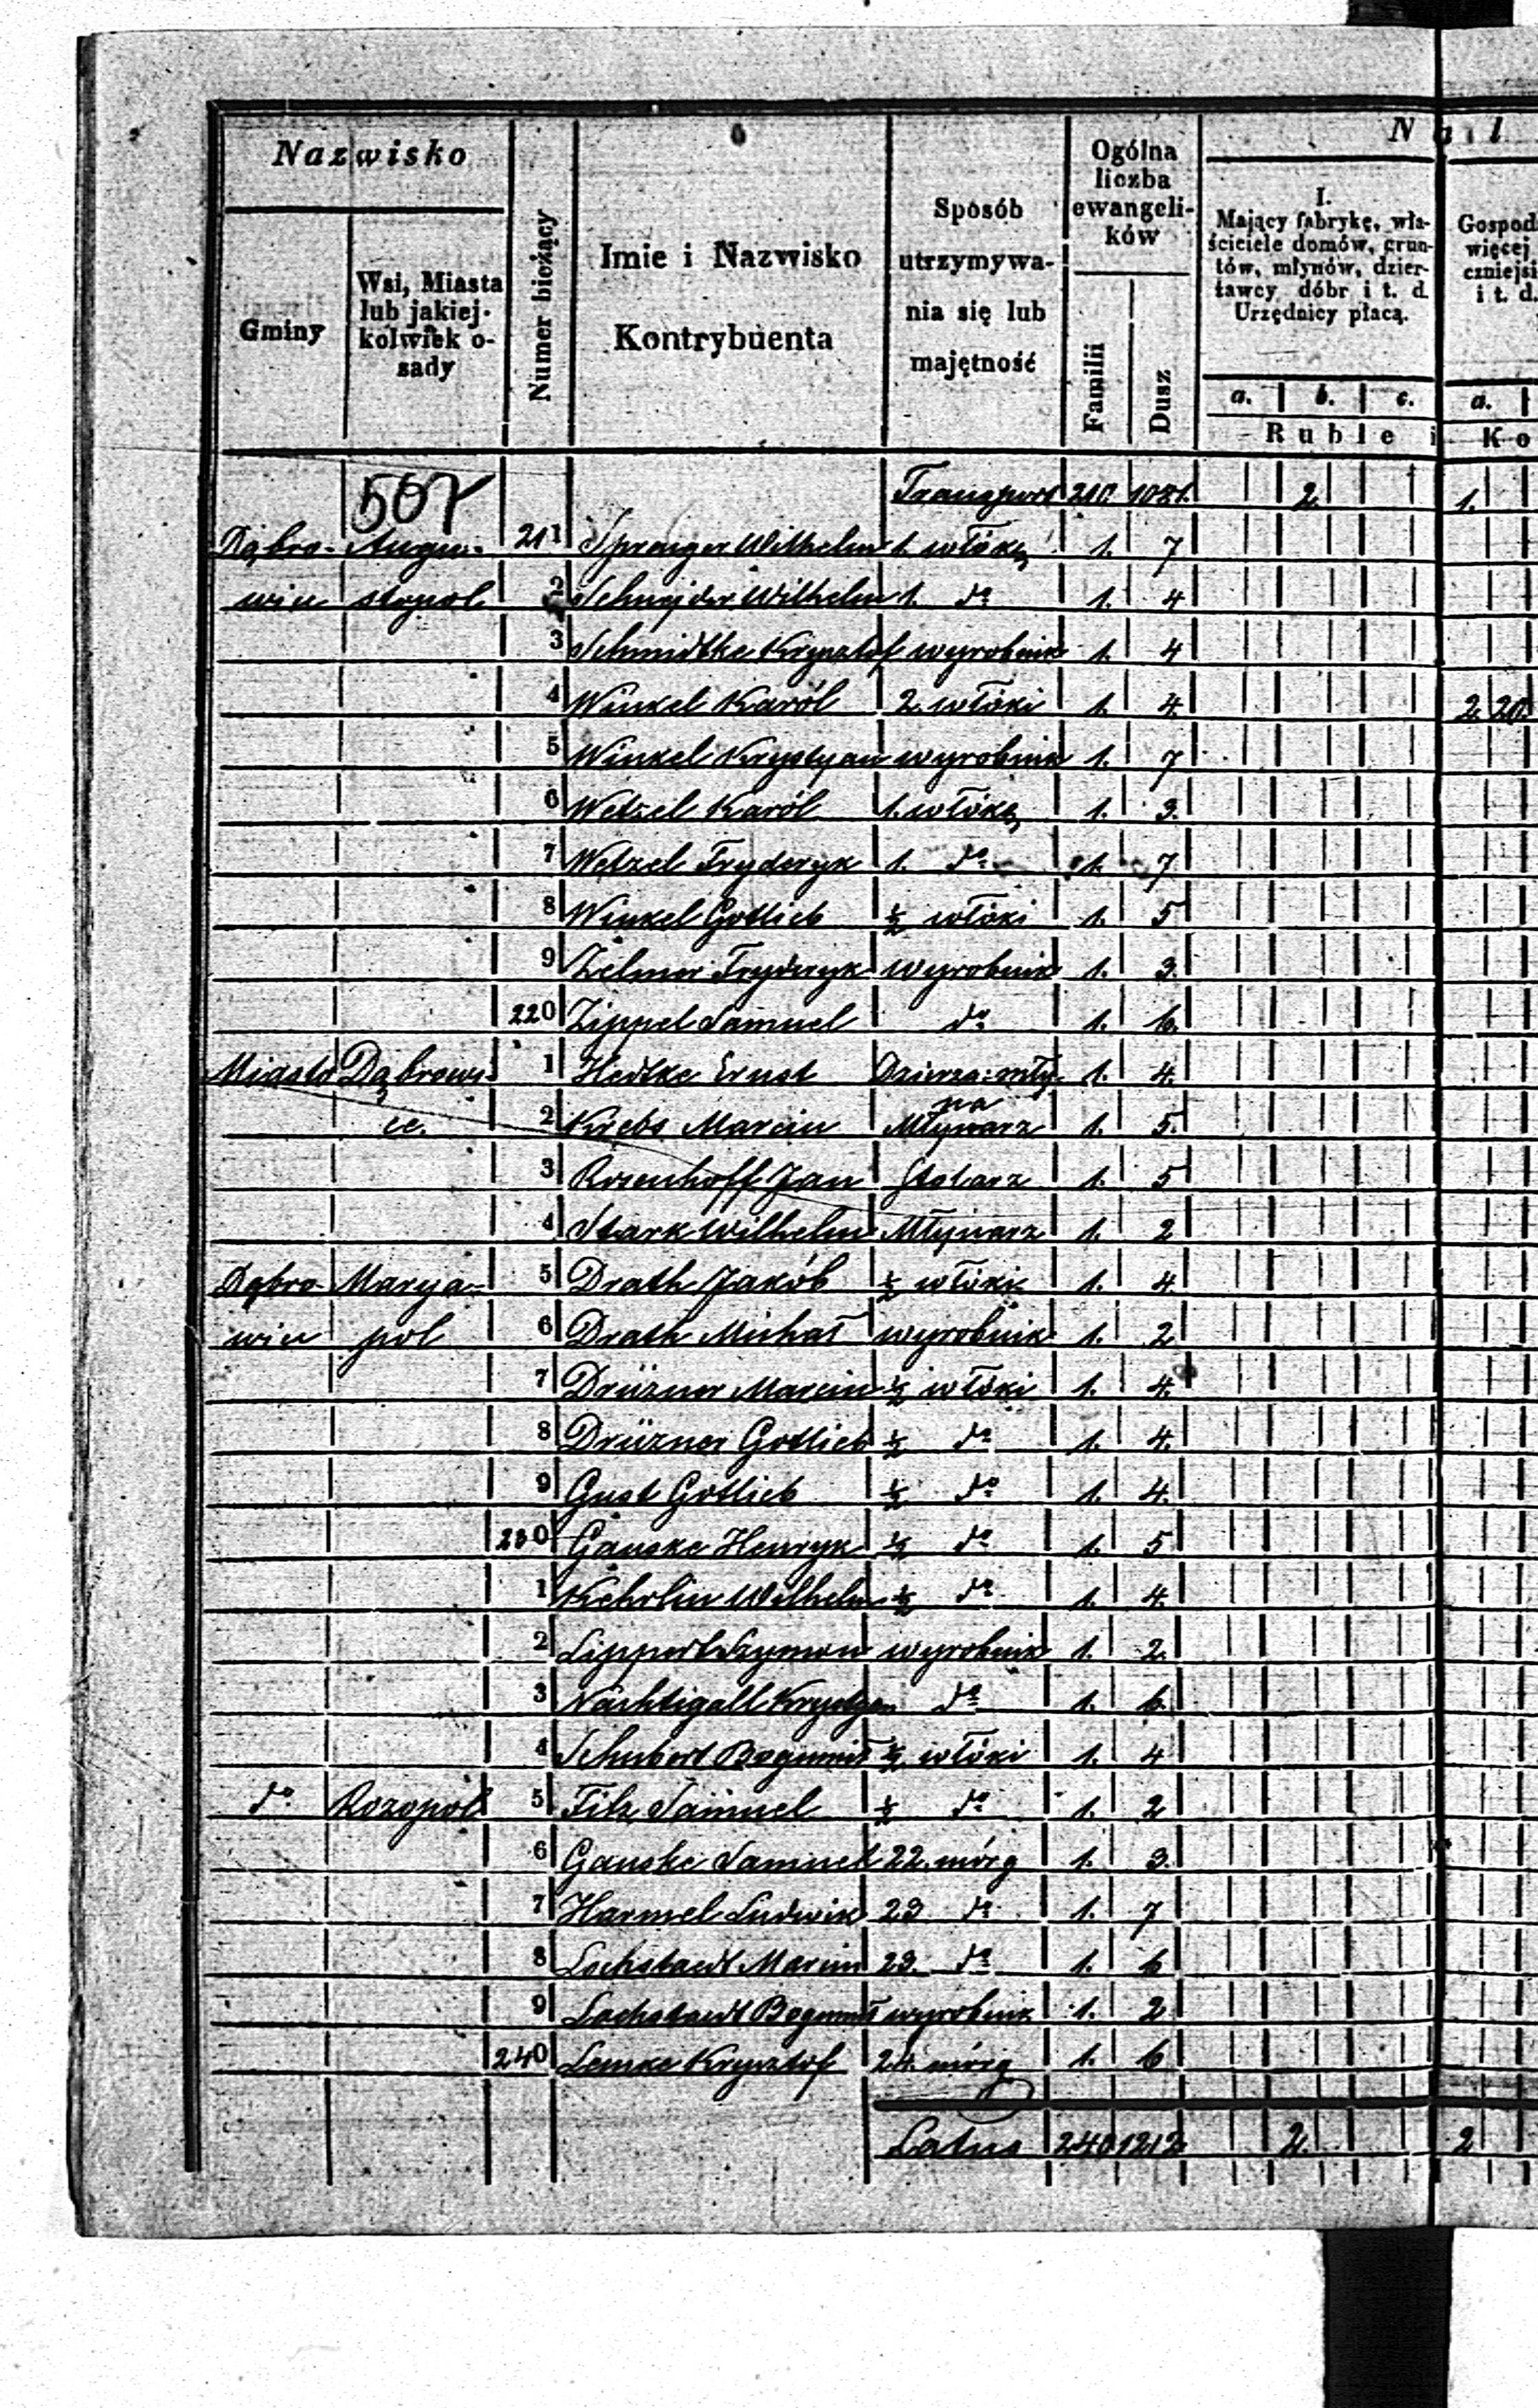 Nazwisko
Gminy
Wsi, Miasta lub jakiej-kolwiek o-sady
Numer bieżący
6
Imie i Nazwisko
Kontrybuenta
Sposób utrzymywa-nia się lub majętność
Ogólna liczba ewangeli-ków
Familii
Dusz
N a l
I.
Mający fabrykę, wła-
ściciele domów, grun-
tów, młynów, dzier-
tawcy dóbr i t. d.
Urzędnicy płacą.
a. b. c.
Gospod
więcej
czniejsi
i t. d.
a.
Ruble i Ko
507
Transport 210 1081. 2 1.
Dąbro- Augu- 211 Sprenger Wilhelm 1. włókę 1. 7
wice stopol 2 Schnejder Wilhelm 1. do 1. 4
3 Schmidtke Krysztof wyrobnik 1. 4
4 Winkel Karól 2. włóki 1. 4. 2 20
5 Winkel Krystyan wyrobnik 1. 7
6 Wetzel Karól 1. włókę 1. 3.
7 Wetzel Fryderyk 1. do 1. 7
8 Winkel Gotlieb ½ włóki 1. 5
9 Zelmer Fryderyk wyrobnik 1. 3.
220 Zippel Samuel do 1. 6.
Miasto Dąbrowi- 1 Hedtke Ernst Dzierża: mły- 1. 4.
na
ce. 2 Krebs Marcin Młynarz 1. 5.
3 Rosenhoff Jan Stolarz 1. 5
4 Stark Wilhelm Młynarz 1. 2
Dąbro Marya- 5 Drath Jakób ½ włóki 1. 4.
wice pol 6 Drath Michał wyrobnik 1. 2
7 Drüzner Marcin ½ włóki 1. 4.
8 Drüzner Gotlieb ½ do 1. 4.
9 Gust Gotlieb ½ do 1. 4.
230 Ganske Henryk ½ do 1. 5
1 Kehrlin Wilhelm ½ do 1. 4.
2 Lippert Szymon wyrobnik 1. 2.
3 Nachtigall Krystyan do 1. 6.
4 Schubert Bogumił ½ włóki 1. 4
do Rozopol 5 Filz Samuel ½ do 1. 2
6 Ganske Samuel 22. mórg 1. 3.
7 Harmel Ludwik 23 do 1. 7
8 Lochstaedt Marcin 23. do 1. 6
9 Lochstaedt Bogumił wyrobnik 1. 2
240 Lemke Krysztof 24. mórg 1. 6
Latus 240 1212. 2. 2